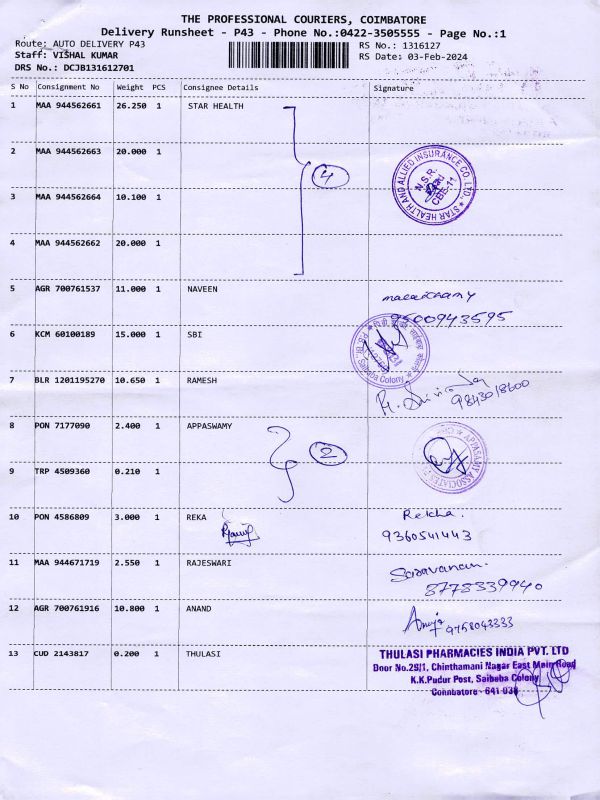 THE PROFESSIONAL COURIERS, COIMBATORE
Delivery Runsheet - P43 - Phone No.:0422-3505555 - Page No.:1
Route: AUTO DELIVERY P43 RS No.: 1316127
Staff: VISHAL KUMAR RS Date: 03-Feb-2024
DRS No.: DCJB131612701
S No Consignment No Weight PCS Consignee Details Signature
1 MAA 944562661 26.250 1 STAR HEALTH
2 MAA 944562663 20.000 1
4
STAR HEALTH AND ALLIED INSURANCE CO. LTD.
N.S.R.
CBE-11
3 MAA 944562664 10.100 1
4 MAA 944562662 20.000 1
5 AGR 700761537 11.000 1 NAVEEN
9500943595
6 KCM 60100189 15.000 1 SBI
Saibaba Colony
7 BLR 1201195270 10.650 1 RAMESH
9843018600
8 PON 7177090 2.400 1 APPASWAMY
2
APPASAMY ASSOCIATES
9 TRP 4509360 0.210 1
10 PON 4586809 3.000 1 REKA Rekha.
9360541443
11 MAA 944671719 2.550 1 RAJESWARI Saravanan.
8778339940
12 AGR 700761916 10.800 1 ANAND
9758043333
13 CUD 2143817 0.200 1 THULASI
THULASI PHARMACIES INDIA PVT. LTD
Door No.29/1, Chinthamani Nagar East Main Road
K.K.Pudur Post, Saibaba Colony
Coimbatore - 641 038